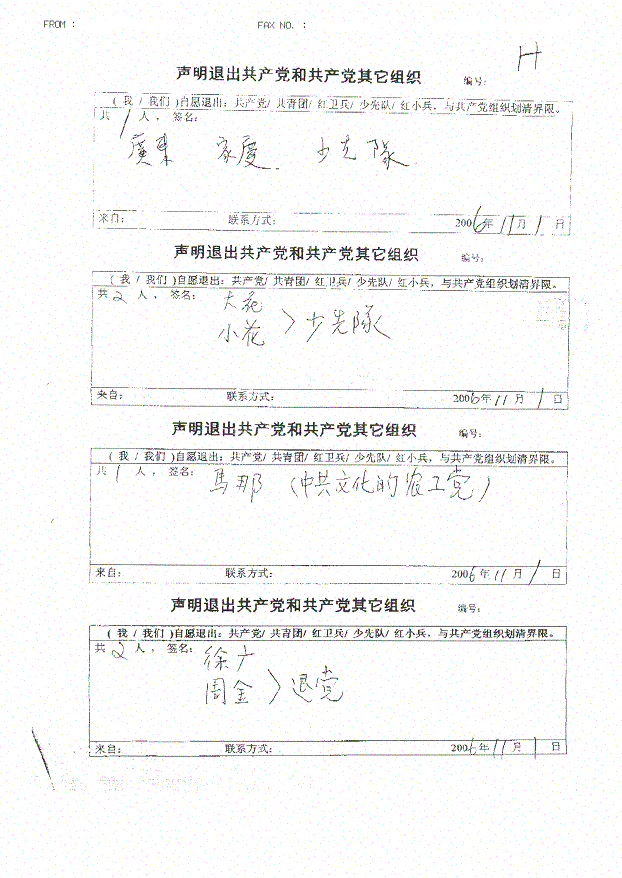 FROM : FAX NO. :
H
声明退出共产党和共产党其它组织 编号:
( 我 / 我们 )自愿退出: 共产党/ 共青团/ 红卫兵/ 少先队/ 红小兵, 与共产党组织划清界限。
共 1 人 , 签名:
廣東 家慶 少先隊
来自: 联系方式: 2006年11月1日
声明退出共产党和共产党其它组织 编号:
( 我 / 我们 )自愿退出: 共产党/ 共青团/ 红卫兵/ 少先队/ 红小兵, 与共产党组织划清界限。
共 2 人 , 签名: 大花
小花 > 少先隊
来自: 联系方式: 2006年11月1日
声明退出共产党和共产党其它组织 编号:
( 我 / 我们 )自愿退出: 共产党/ 共青团/ 红卫兵/ 少先队/ 红小兵, 与共产党组织划清界限。
共 1 人 , 签名: 馬那 (中共文化的农工党)
来自: 联系方式: 2006年11月1日
声明退出共产党和共产党其它组织 编号:
( 我 / 我们 )自愿退出: 共产党/ 共青团/ 红卫兵/ 少先队/ 红小兵, 与共产党组织划清界限。
共 2 人 , 签名: 徐广
周金 > 退党
来自: 联系方式: 2006年11月1日